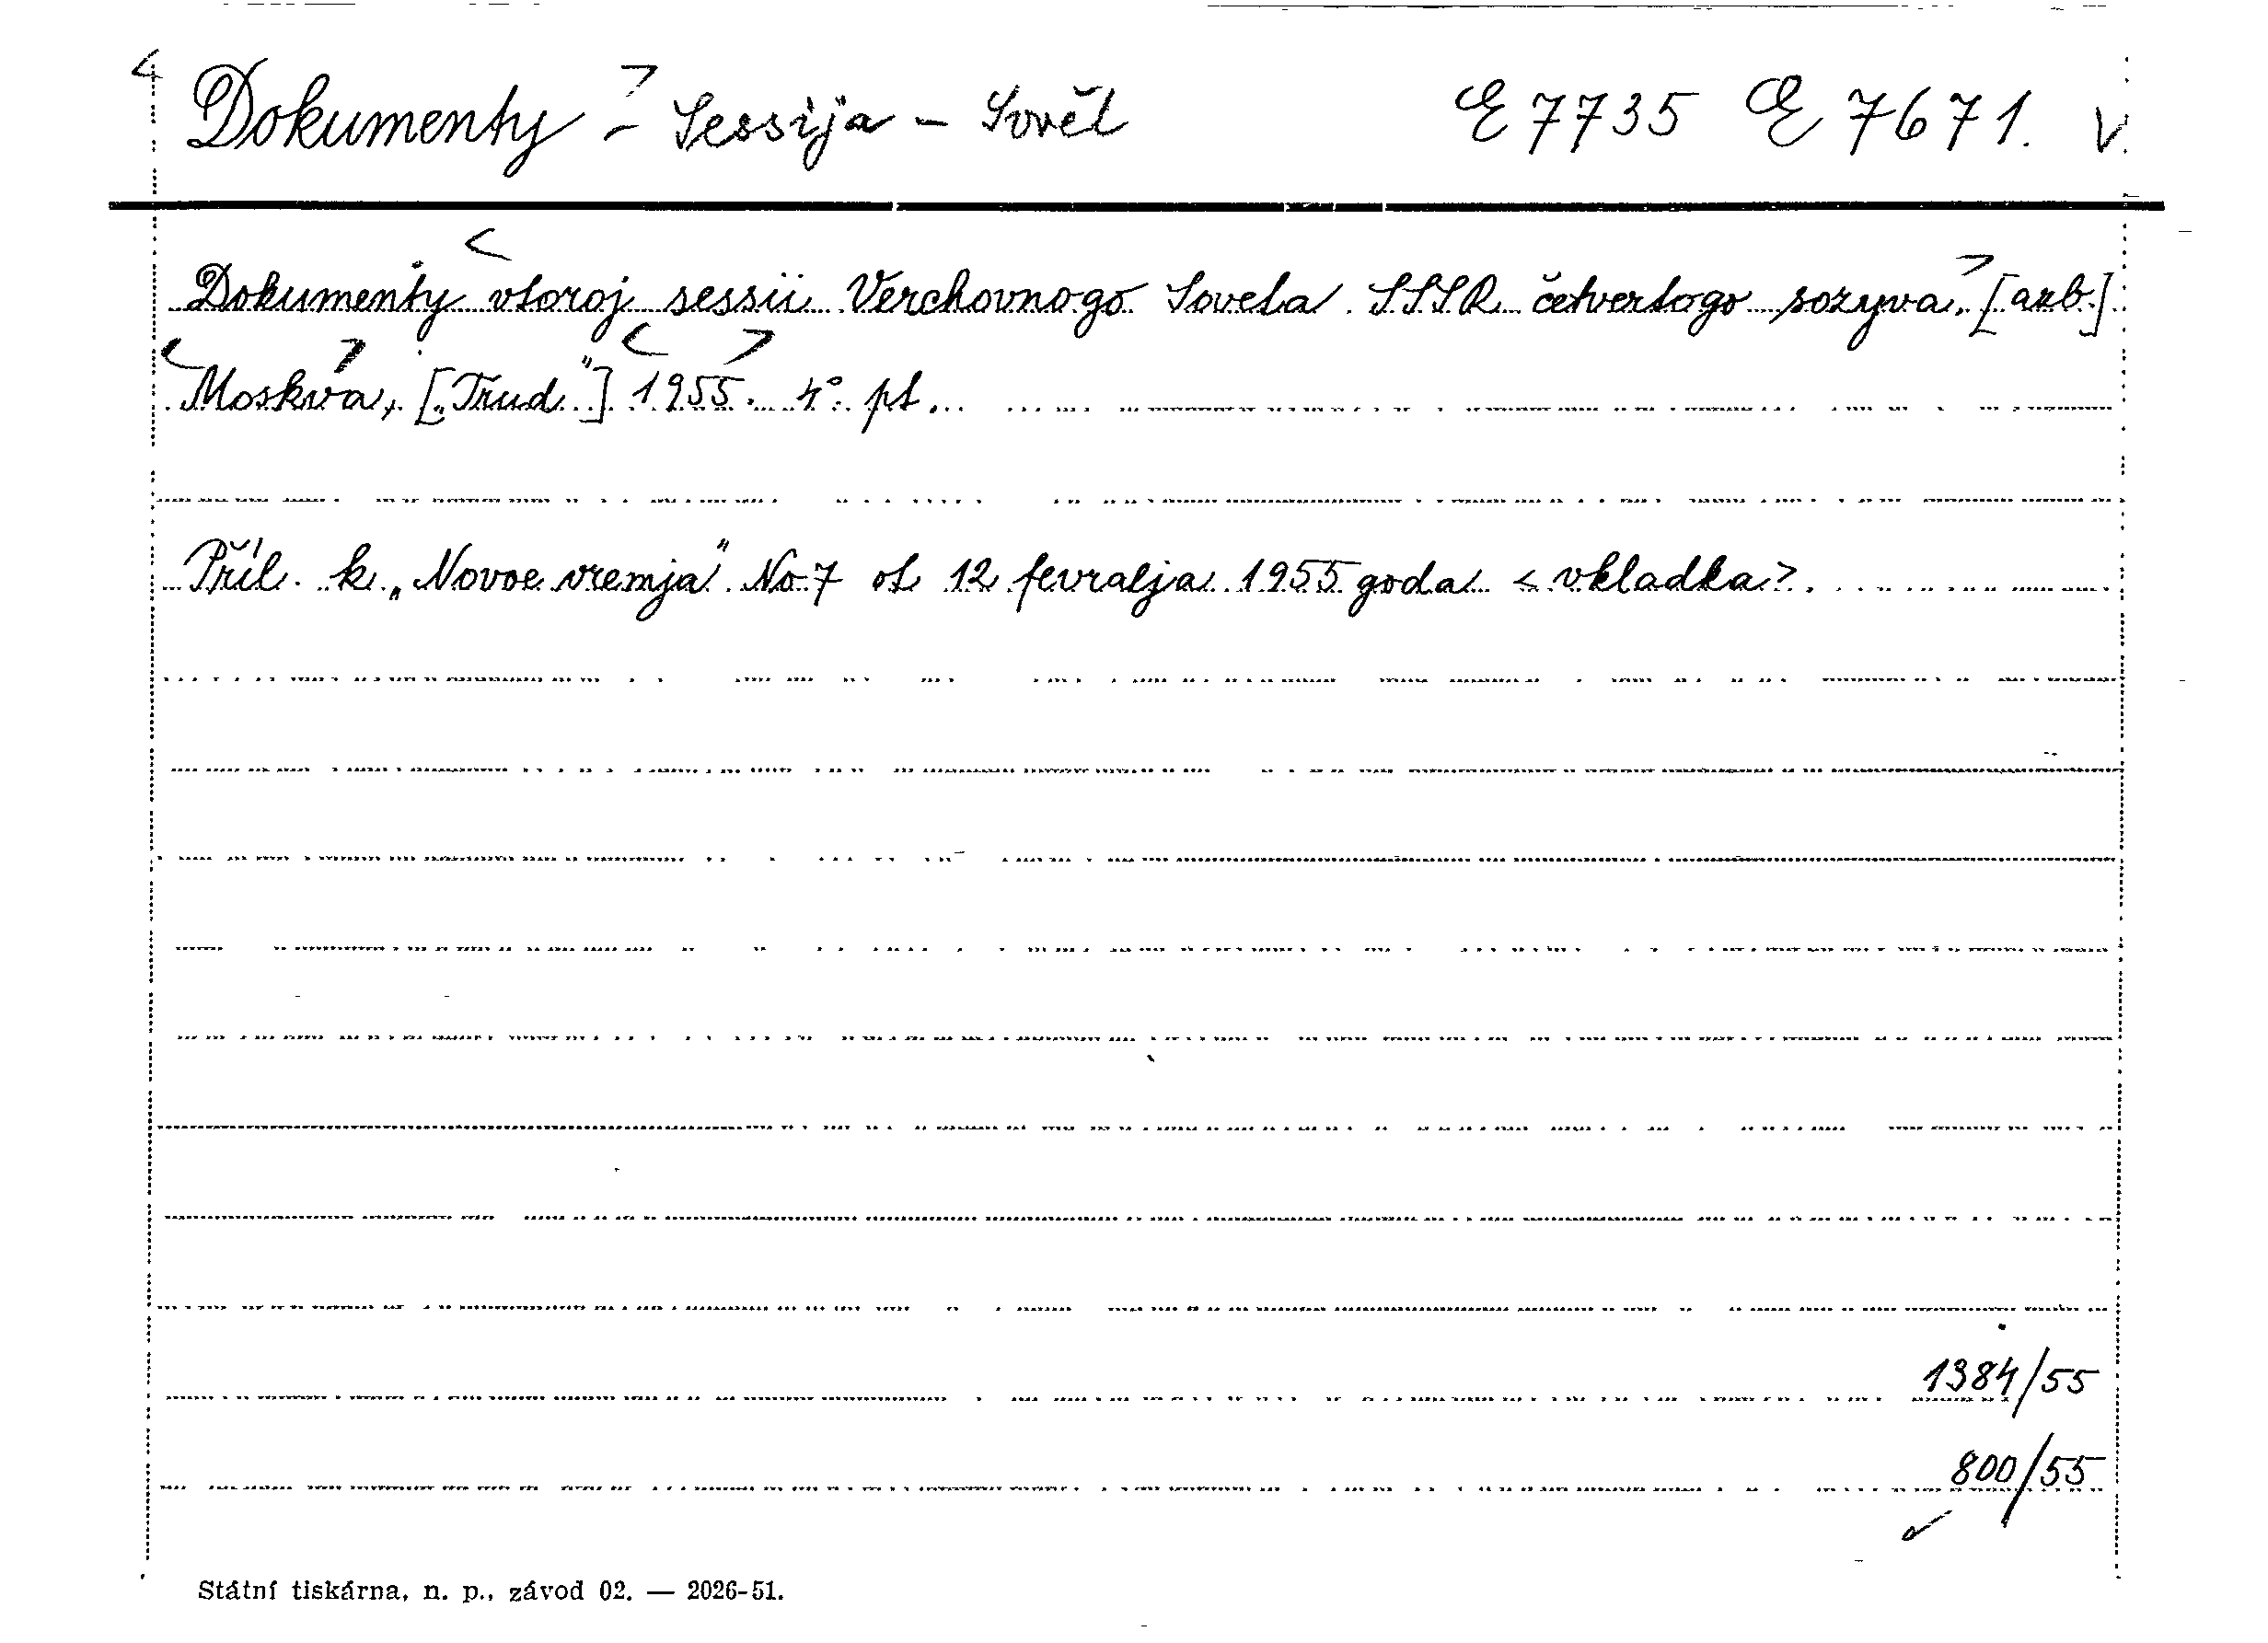 < Dokumenty > - Sessija - Sovět E 7735 E 7671. V.
Dokumenty < vtoroj sessii Verchovnogo Soveta SSSR četvertogo sozyva. > [azb.]
< Moskva >, [„Trud"] < 1955 >. 4°. pt.
Příl. k „Novoe vremja" No 7 ot 12 fevralja 1955 goda < vkladka >.
1384/55
800/55
Státní tiskárna, n. p., závod 02. — 2026-51.